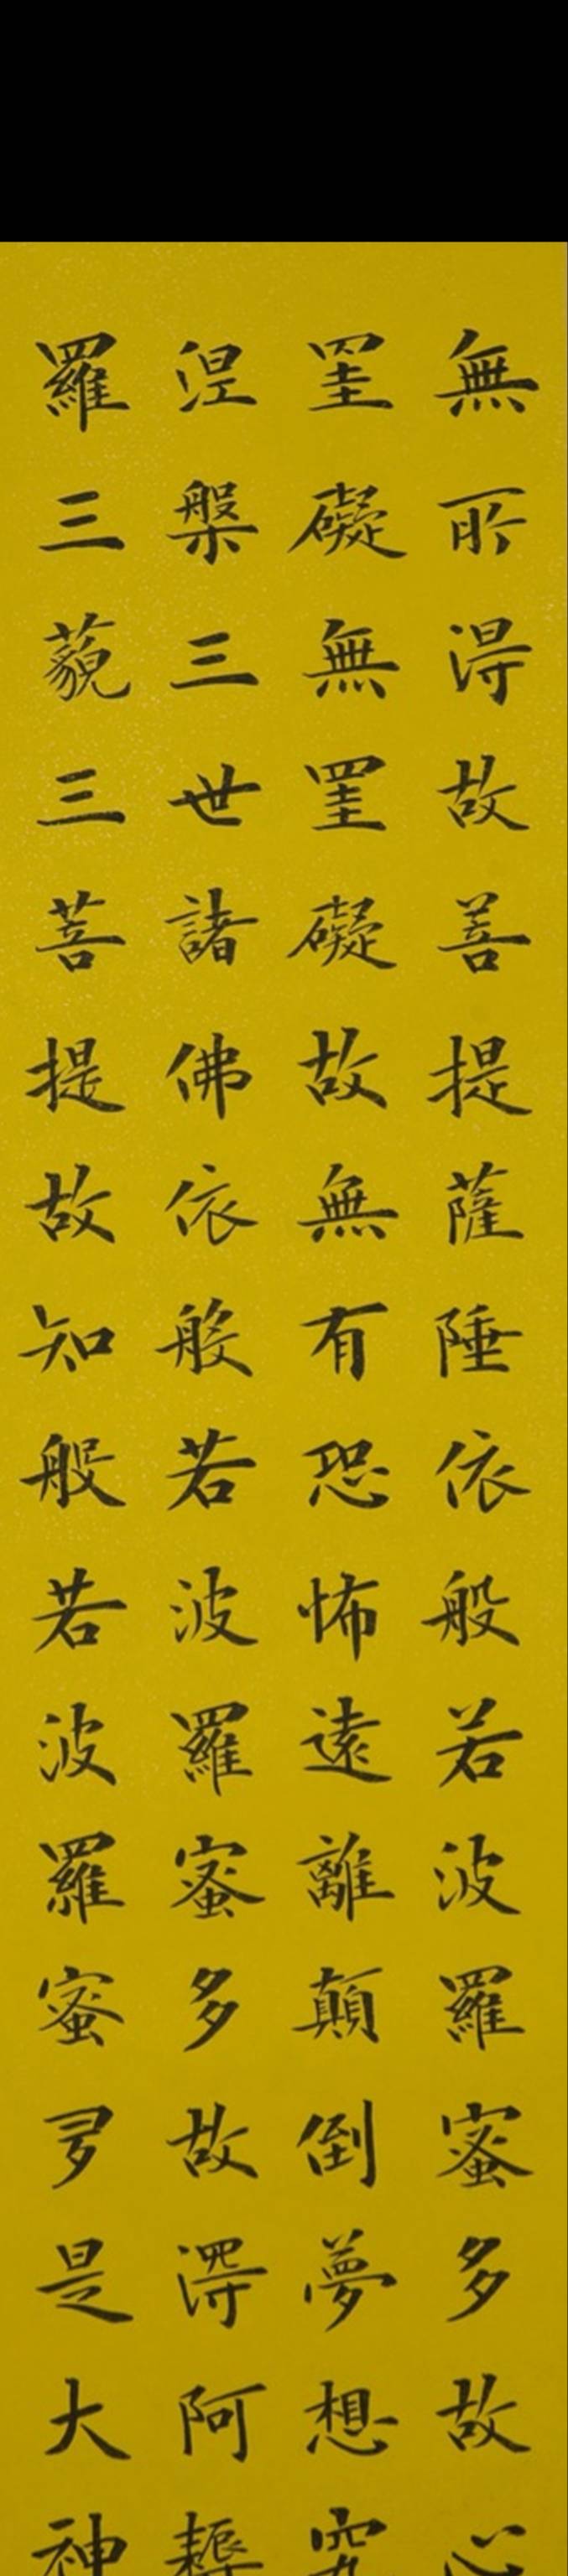 無所得故菩提薩埵依般若波羅蜜多故心
罣礙無罣礙故無有恐怖遠離顛倒夢想究
涅槃三世諸佛依般若波羅蜜多故得阿耨
羅三藐三菩提故知般若波羅蜜多是大神